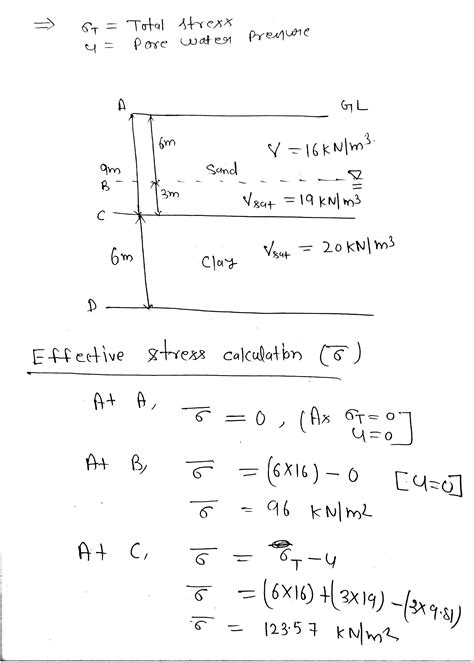 ⇒ σT = Total stress
u = Pore water Pressure
A GL
6m γ = 16 KN/m3.
9m Sand
B 3m γsat = 19 KN/m3
C
6m Clay γsat = 20 KN/m3
D
Effective stress calculation (σ̅)
At A, σ̅ = 0, (As σT = 0
u = 0]
At B, σ̅ = (6×16) - 0 [u=0]
σ̅ = 96 KN/m2
At C, σ̅ = σT - u
σ̅ = (6×16) + (3×19) - (3×9.81)
σ̅ = 123.57 KN/m2